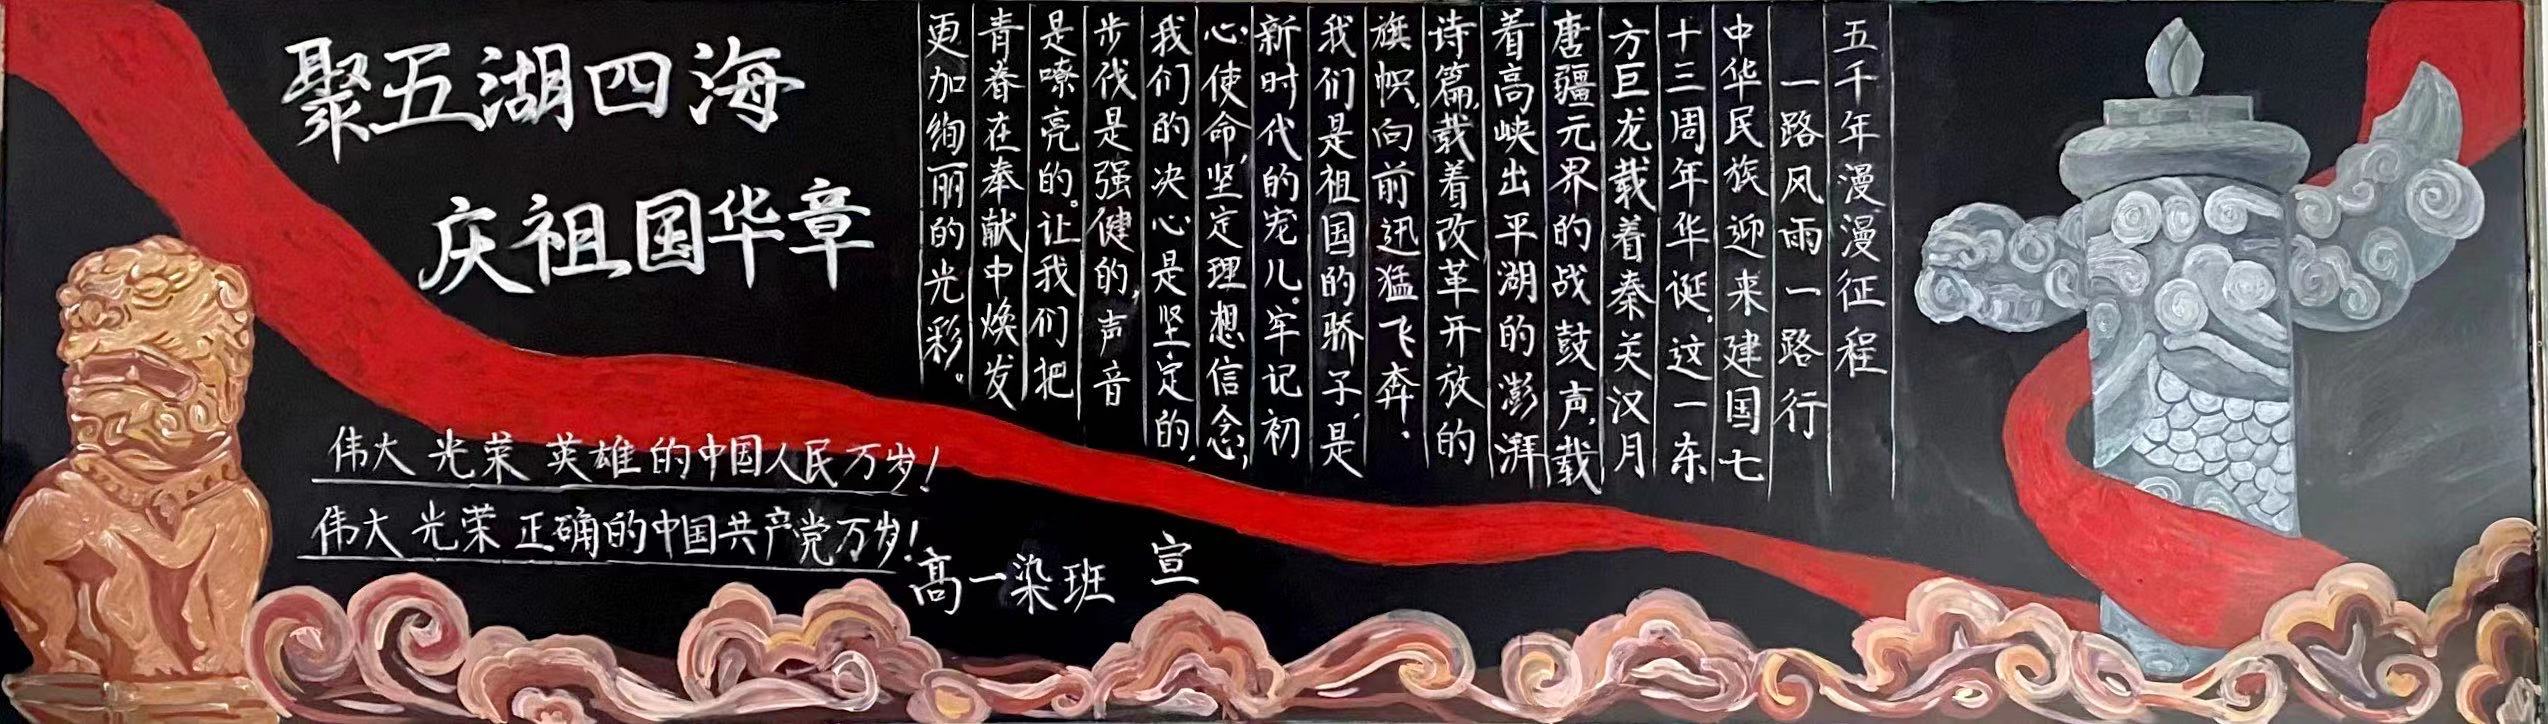 聚五湖四海
庆祖国华章
五千年漫漫征程
一路风雨一路行
中华民族迎来建国七
十三周年华诞,这一东
方巨龙载着秦关汉月
唐疆元界的战鼓声,载
着高峡出平湖的澎湃
诗篇,载着改革开放的
旗帜,向前迅猛飞奔.
我们是祖国的骄子,是
新时代的宠儿。牢记初
心,使命,坚定理想信念,
我们的决心是坚定的,
步伐是强健的,声音
是嘹亮的。让我们把
青春在奉献中焕发
更加绚丽的光彩。
伟大 光荣 英雄的中国人民万岁!
伟大 光荣 正确的中国共产党万岁!
高一染班 宣